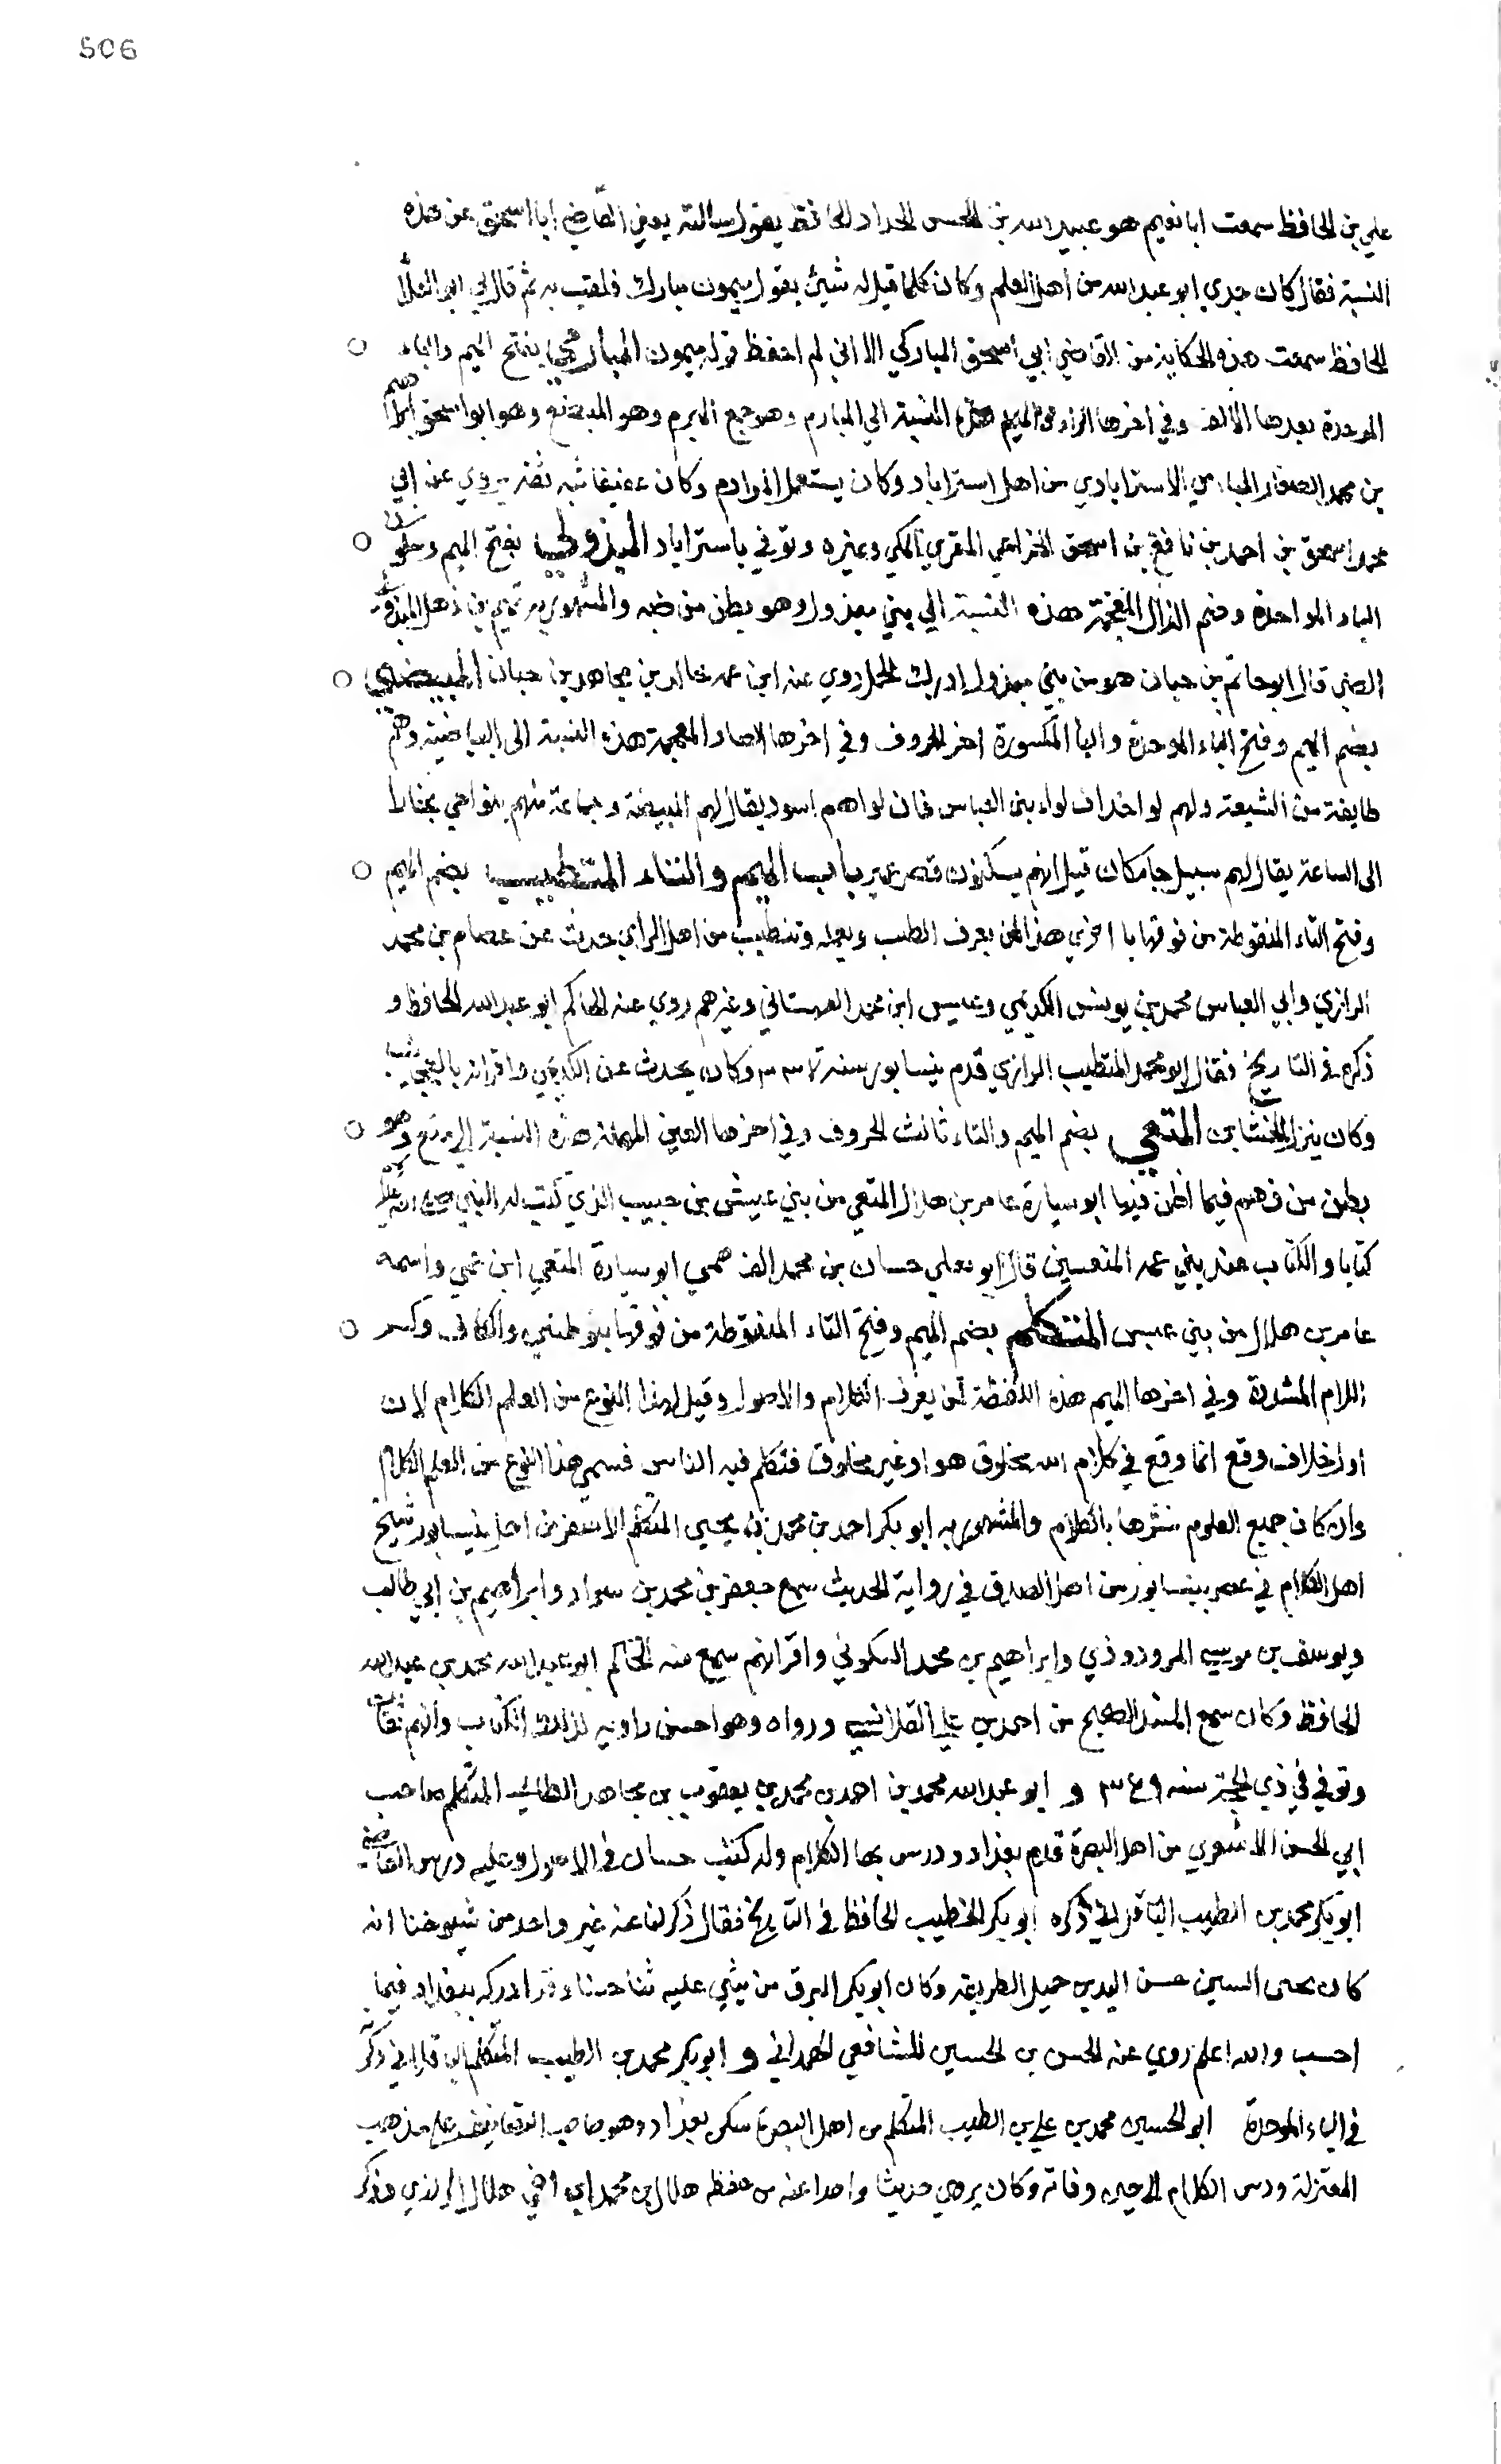 506
علي بن الحافظ سمعت ابا نعيم هو عبيد الله بن الحسن الحداد الحافظ يقول سالته يعني القاضي ابا اسحق عن هذه
النسبة فقال كان جدي ابو عبد الله من اهل العلم وكان كلما قيل له شيئ يقول ميمون مبارك فلقب به ثم قال لي ابو العلا
الحافظ سمعت هذه الحكاية من القاضي ابي اسحق المباركي الا اني لم احفظ قوله ميمون المبارمي بفتح الميم والباء
الموحدة بعدها الالف وفي اخرها الراء والميم هذه النسبة الي المبارم وهو جمع المبرم وهو المبضع وهو ابو اسحق ابراهيم
بن محمد الصفار المبارمي الاستراباذي من اهل استراباد وكان يستعمل المبارم وكان عفيفا ثقة يروي عن ابي
محمد اسحق بن احمد بن نافع بن اسحق الخزاعي المقري المكي وغيره وتوفي باستراباد المبذولي بفتح الميم وسكون
الباء الموحدة وضم الذال المعجمة هذه النسبة الي بني مبذول وهو بطن من ضبه والمشهور به تميم بن ذهل المبذولي
الضبي قال ابو حاتم بن حبان هو من بني مبذول ادرك الجمل روي عنه ابن عمه خالد بن مجاهد بن حبان المبيضي
بضم الميم وفتح الباء الموحدة والياء المكسورة اخر الحروف وفي اخرها الضاد المعجمة هذه النسبة الى المبيضة وهم
طايفة من الشيعة ولهم لوا خلاف لواء بني العباس فان لواهم اسود يقال لهم المبيضة وجماعة منهم بنواحي بخارا
الى الساعة يقال لهم سبيل جامكان قيل انهم يسكنون قصر عمير باب الميم والتاء المتطبب بضم الميم
وفتح التاء المنقوطة من فوقها با اخري هذا لمن يعرف الطب ويعمله ومتطبب من اهل الراي حدث عن عصام بن محمد
الرازي وابي العباس محمد بن يونس الكديمي وعيسى ابن محمد القهستاني وغيرهم روي عنه الحاكم ابو عبد الله الحافظ و
ذكره في التاريخ فقال ابو محمد المتطبب الرازي قدم نيسابور سنة ٣٣٧ وكان يحدث عن الكديمي واقرانه بالعجايب
وكان ينزل المتعي بضم الميم والتاء ثالث الحروف وفي اخرها العين المهملة هذه النسبة الي متع وهو
بطن من فهم فيما اظن فيها ابو سيارة عامر بن هلال المتعي من بني عبس بن حبيب الذي كتب له النبي صلى الله عليه
كتابا والكتاب عند بني عمه المتعيين قال ابو يعلي حسان بن محمد الفهمي ابو سيارة المتعي ابن عمي واسمه
عامر بن هلال من بني عبس المتكلم بضم الميم وفتح التاء المنقوطة من فوقها بنقطتين والكاف وكسر
اللام المشددة وفي اخرها الميم هذه اللفظة لمن يعرف الكلام والاصول وقيل لهذا النوع من العلم الكلام لان
اول خلاف وقع انما وقع في كلام الله مخلوق هو او غير مخلوق فتكلم فيه الناس فسمي هذا النوع من العلم الكلام
وان كان جميع العلوم نشرها بالكلام والمشهور به ابو بكر احمد بن محمد بن يحيى المتكلم الاشقر من اهل نيسابور شيخ
اهل الكلام في عصره بنيسابور من اهل الصدق في رواية الحديث سمع جعفر بن محمد بن سوار وابراهيم بن ابي طالب
ويوسف بن موسى المروروذي وابراهيم بن محمد السكوني واقرانهم سمع منه الحاكم ابو عبد الله محمد بن عبد الله
الحافظ وكان سمع المسند الصحيح من احمد بن علي القلانسي ورواه وهو احسن راويه لذلك الكتاب وانهم ثقات
وتوفي في ذي الحجة سنه ٣٤٩ و ابو عبد الله محمد بن احمد بن محمد بن يعقوب بن مجاهد الطائي المتكلم صاحب
ابي الحسن الاشعري من اهل البصرة قدم بغداد ودرس بها الكلام وله كتب حسان في الاصول وعليه درس القاضي
ابو بكر محمد بن الطيب الباقلاني ذكره ابو بكر الخطيب الحافظ في التاريخ فقال ذكر لنا عنه غير واحد من شيوخنا انه
كان حسن الدين جميل الطريقة وكان ابو بكر البرقاني يثني عليه ثنا حسنا وقد ادركه ببغداد فيما
احسب والله اعلم روي عنه الحسن بن الحسين الشافعي الهمداني و ابو بكر محمد بن الطيب المتكلم الباقلاني ذكرته
في الباء الموحدة ابو الحسين محمد بن علي بن الطيب المتكلم من اهل البصرة سكن بغداد وهو صاحب التصانيف علي مذهب
المعتزلة ودرس الكلام الى حين وفاته وكان يروي حديثا واحدا عنه من حفظه هلال بن محمد ابن اخي هلال الرازي وذكر